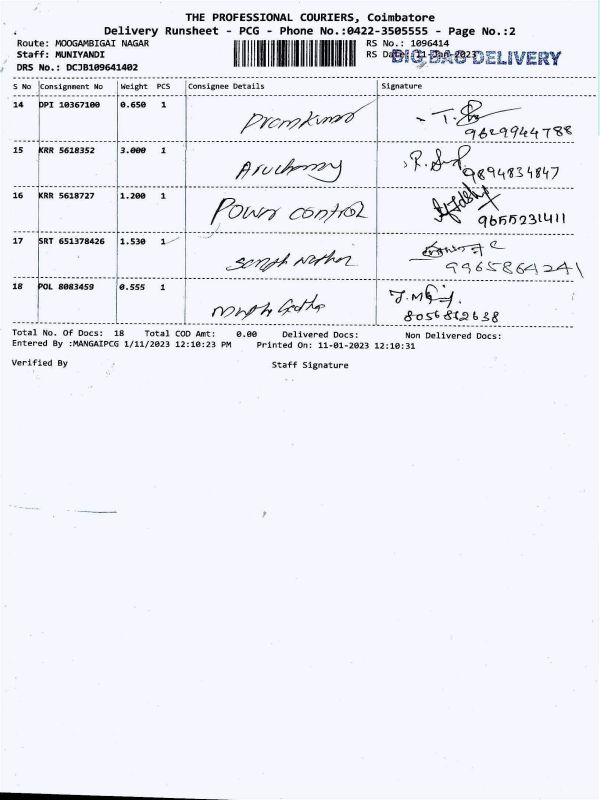 THE PROFESSIONAL COURIERS, Coimbatore
Delivery Runsheet - PCG - Phone No.:0422-3505555 - Page No.:2
Route: MOOGAMBIGAI NAGAR RS No.: 1096414
Staff: MUNIYANDI RS Date: 11-Jan-2023 BIG BAG DELIVERY
DRS No.: DCJB109641402
S No Consignment No Weight PCS Consignee Details Signature
14 DPI 10367100 0.650 1 Premkumar
9629944788
15 KRR 5618352 3.000 1 Aruchamy 9894834847
16 KRR 5618727 1.200 1 Power control 9655231411
17 SRT 651378426 1.530 1
9965864241
18 POL 8083459 0.555 1
8056862638
Total No. Of Docs: 18 Total COD Amt: 0.00 Delivered Docs: Non Delivered Docs:
Entered By :MANGAIPCG 1/11/2023 12:10:23 PM Printed On: 11-01-2023 12:10:31
Verified By Staff Signature